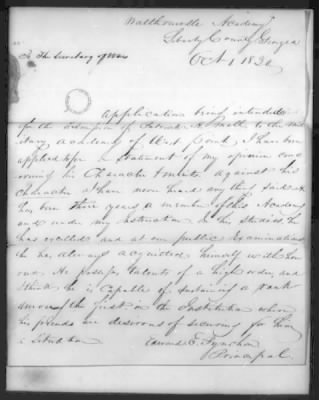 Walthourville Academy
Liberty County Georgia
Oct 1 1832
To The Secretary of War
Application being intended
for the admission of Patrick H. to the mili
tary academy of West Point I have been
applied to for a statement of my opinion con
cerning his Character & merits. Against his
Character I have never heard any thing said. He
has been three years a member of this Academy
and under my instruction. In his studies he
has excelled and at our public Examinations
he has always acquitted himself with hon
our. He possesses talents of a high order, and
I think he is capable of sustaining a rank
among the first in the Institution where
his friends are desirous of securing for him
a situation
Edward E. Pynchon
Principal